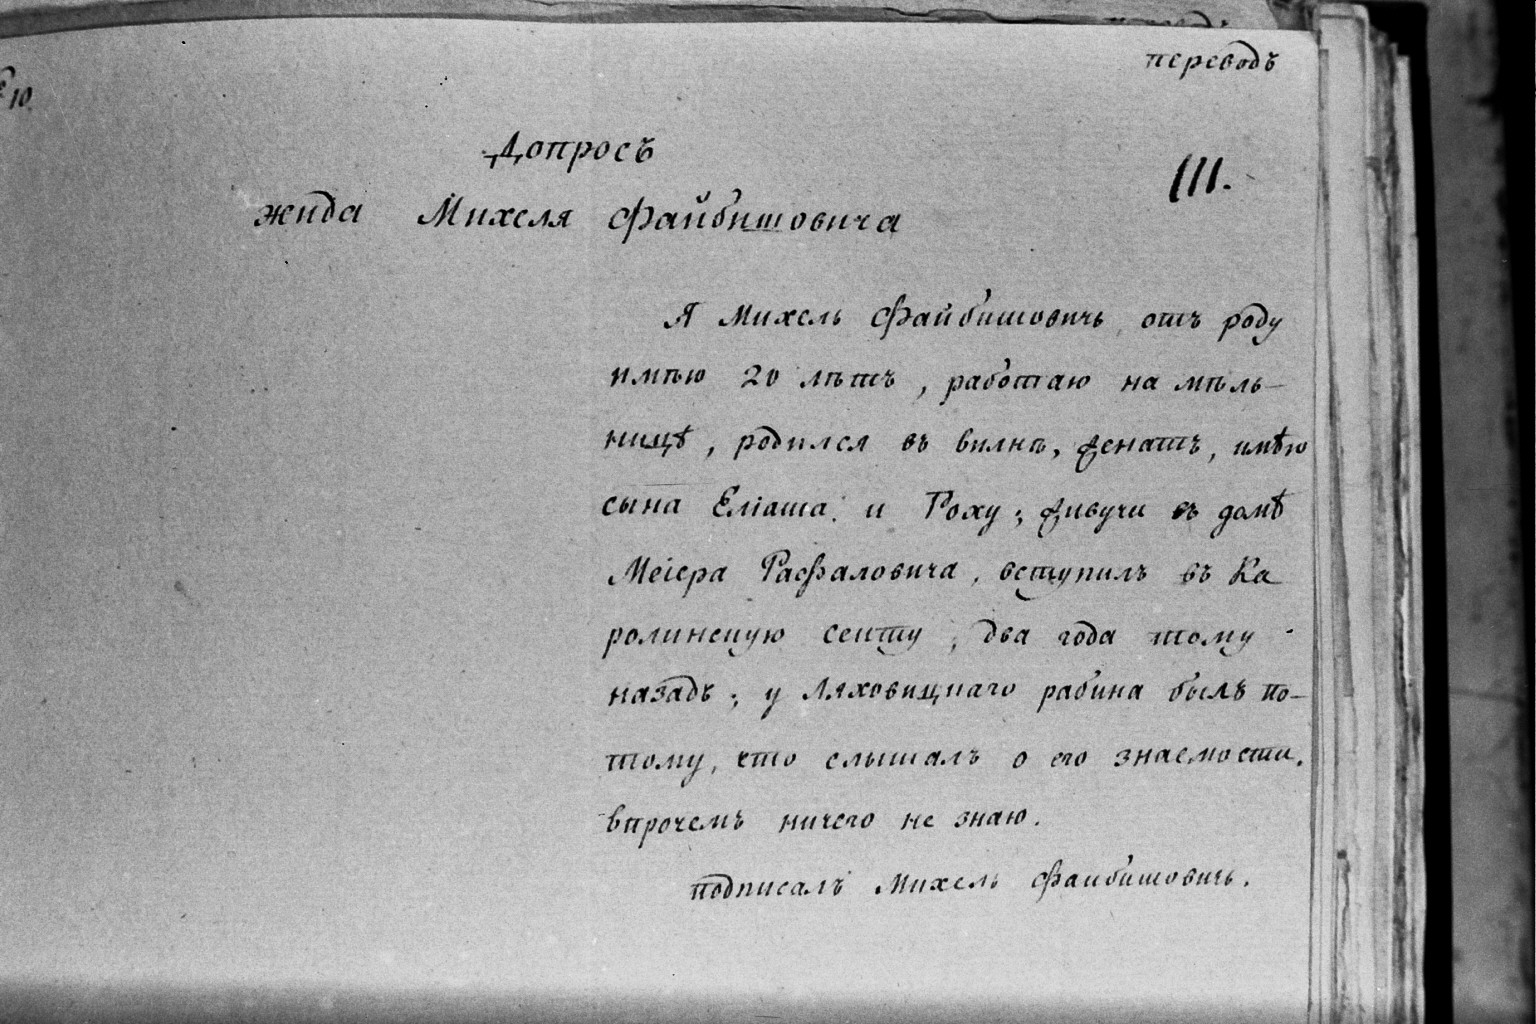 переводъ
10.
Допросъ
111.
жида Михеля Файбишовича
Я Михель Файбишовичь отъ роду
имѣю 20 лѣтъ, работаю на мѣль-
ницѣ, родился въ вилнѣ, женатъ, имѣю
сына Еліаша и Роху; живучи въ домѣ
Меіера Рафаловича, вступилъ въ Ка
ролинскую секту, два года тому
назадъ; у Ляховицкаго рабина былъ по-
тому, что слышалъ о его знаемости.
впрочемъ ничего не знаю.
подписалъ Михель Файбишовичь.